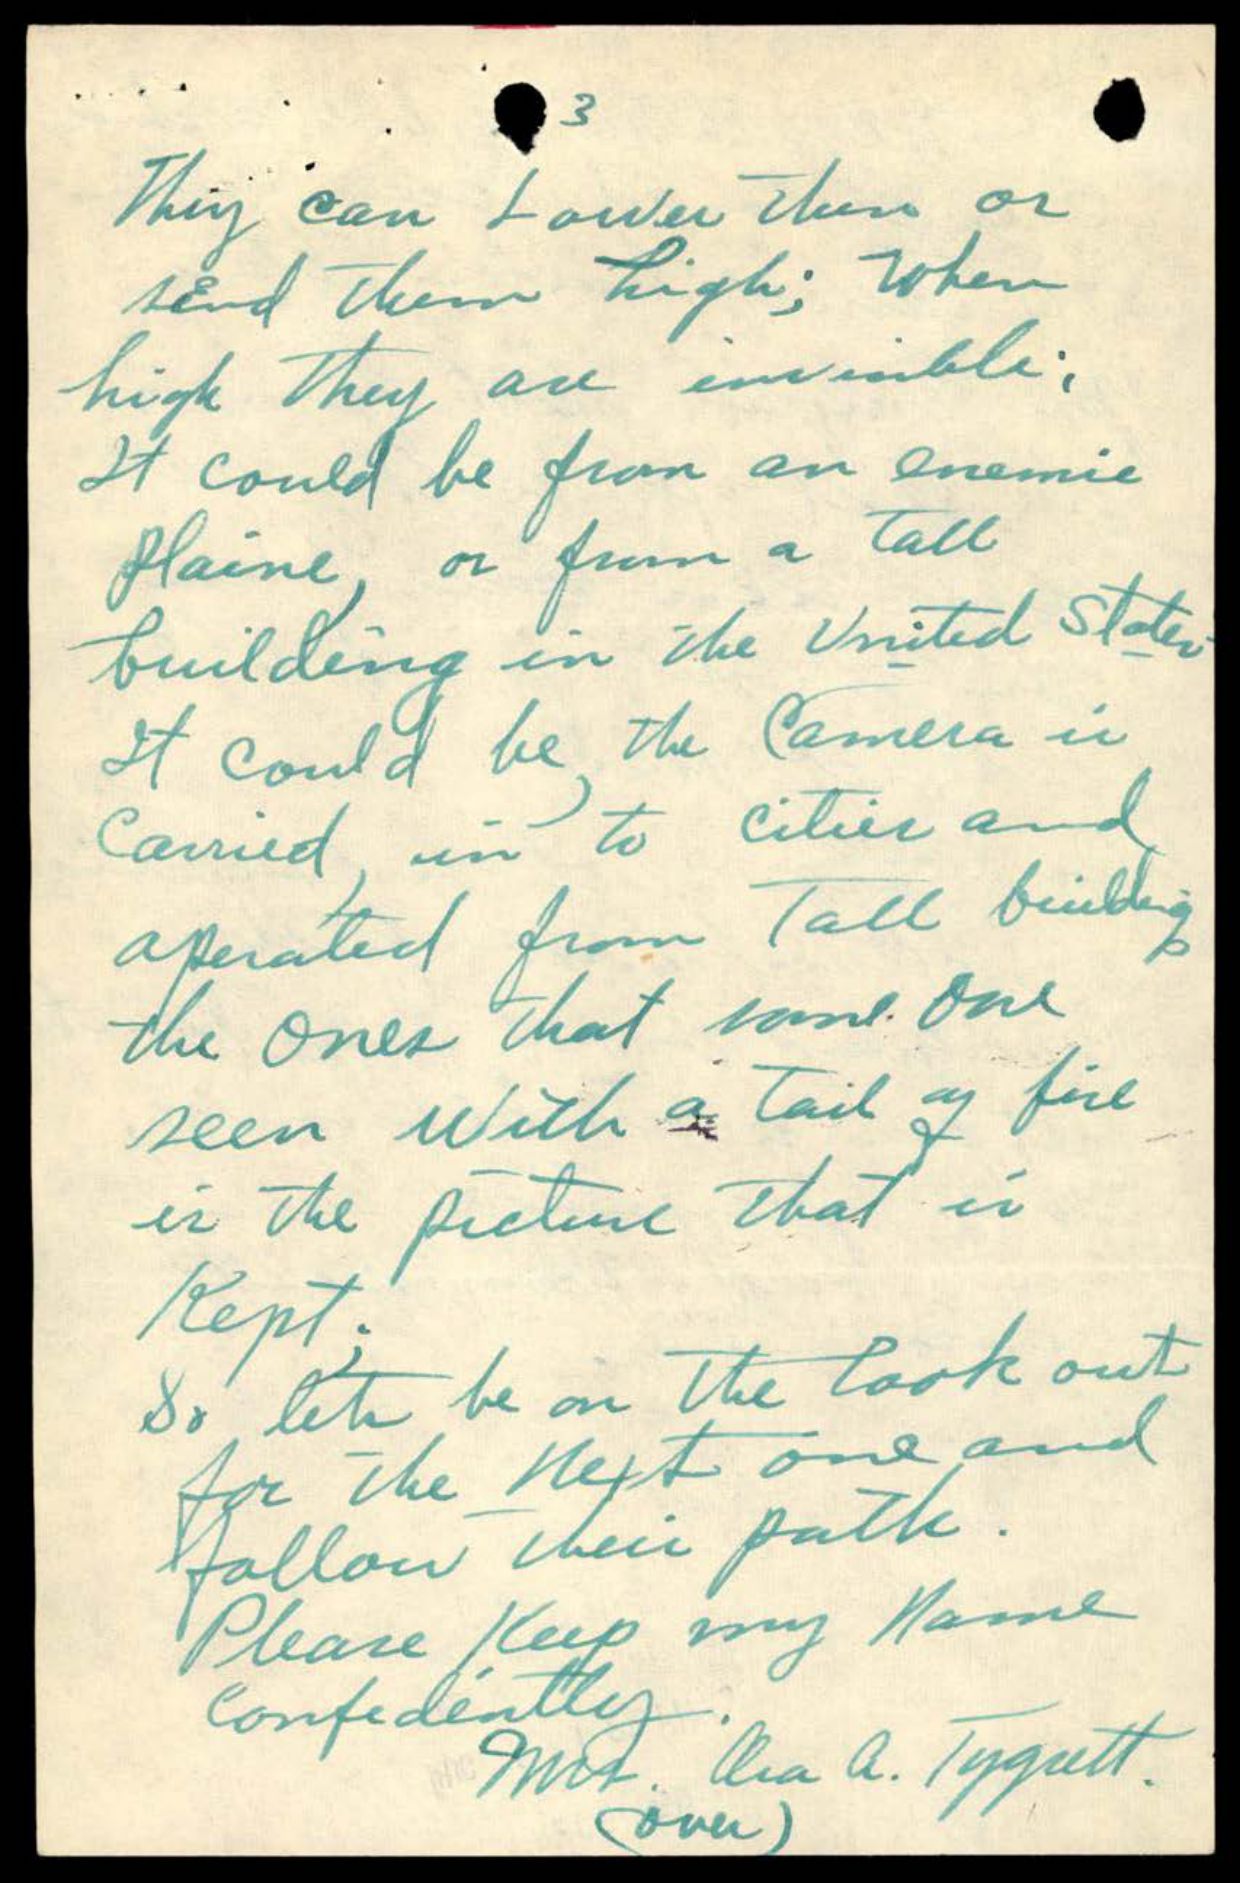 3
They can Lower them or
send them high; when
high they are invisible;
It could be from an enemie
plaine, or from a tall
building in the United States
It could be, the Camera is
Carried, in to cities and
operated from Tall buildings
the ones that some one
seen with a tail of fire
is the picture that is
Kept;
So lets be on the look out
for the Next one and
follow their path.
Please Keep my Name
confedently.
Mrs. A. Tygrett.
(over)